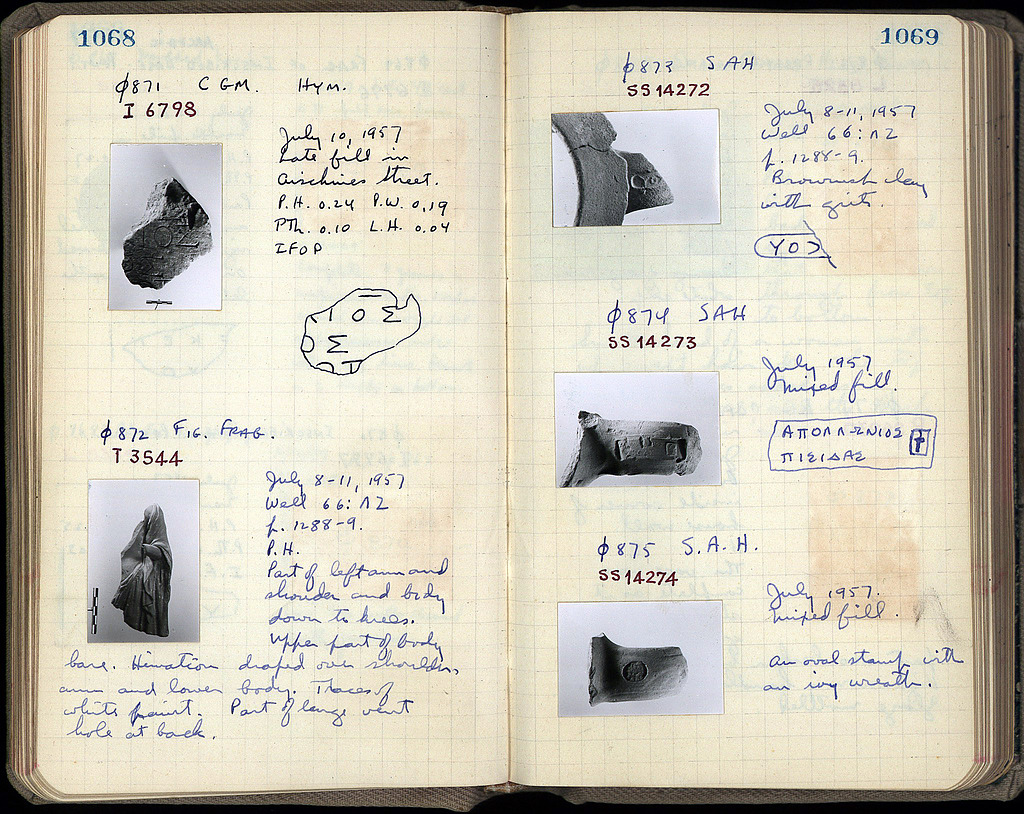 1068
ϕ871 C GM. HYM.
I 6798
July 10, 1957
Late fill in
Aischines Street.
P.H. 0.24 P.W. 0.19
PTh. 0.10 L.H. 0.04
IFOP
ΙΟΣ
ΟΣ
ϕ872 FIG. FRAG.
T 3544
July 8-11, 1957
Well 66: ΛΖ
p. 1288-9.
P.H.
Part of left arm and
shoulder and body
down to knees.
Upper part of body
bare. Himation draped over shoulder,
arm and lower body. Traces of
white paint. Part of large vent
hole at back.
1069
ϕ873 SAH
SS 14272
July 8-11, 1957
Well 66: ΛΖ
p. 1288-9.
Brownish clay
with grits.
ΥΟ
ϕ874 SAH
SS 14273
July 1957
mixed fill.
ΑΠΟΛΛΩΝΙΟΣ
ΠΙΣΙΔΑΣ
ϕ875 S.A.H.
SS 14274
July 1957.
mixed fill.
an oval stamp with
an ivy wreath.